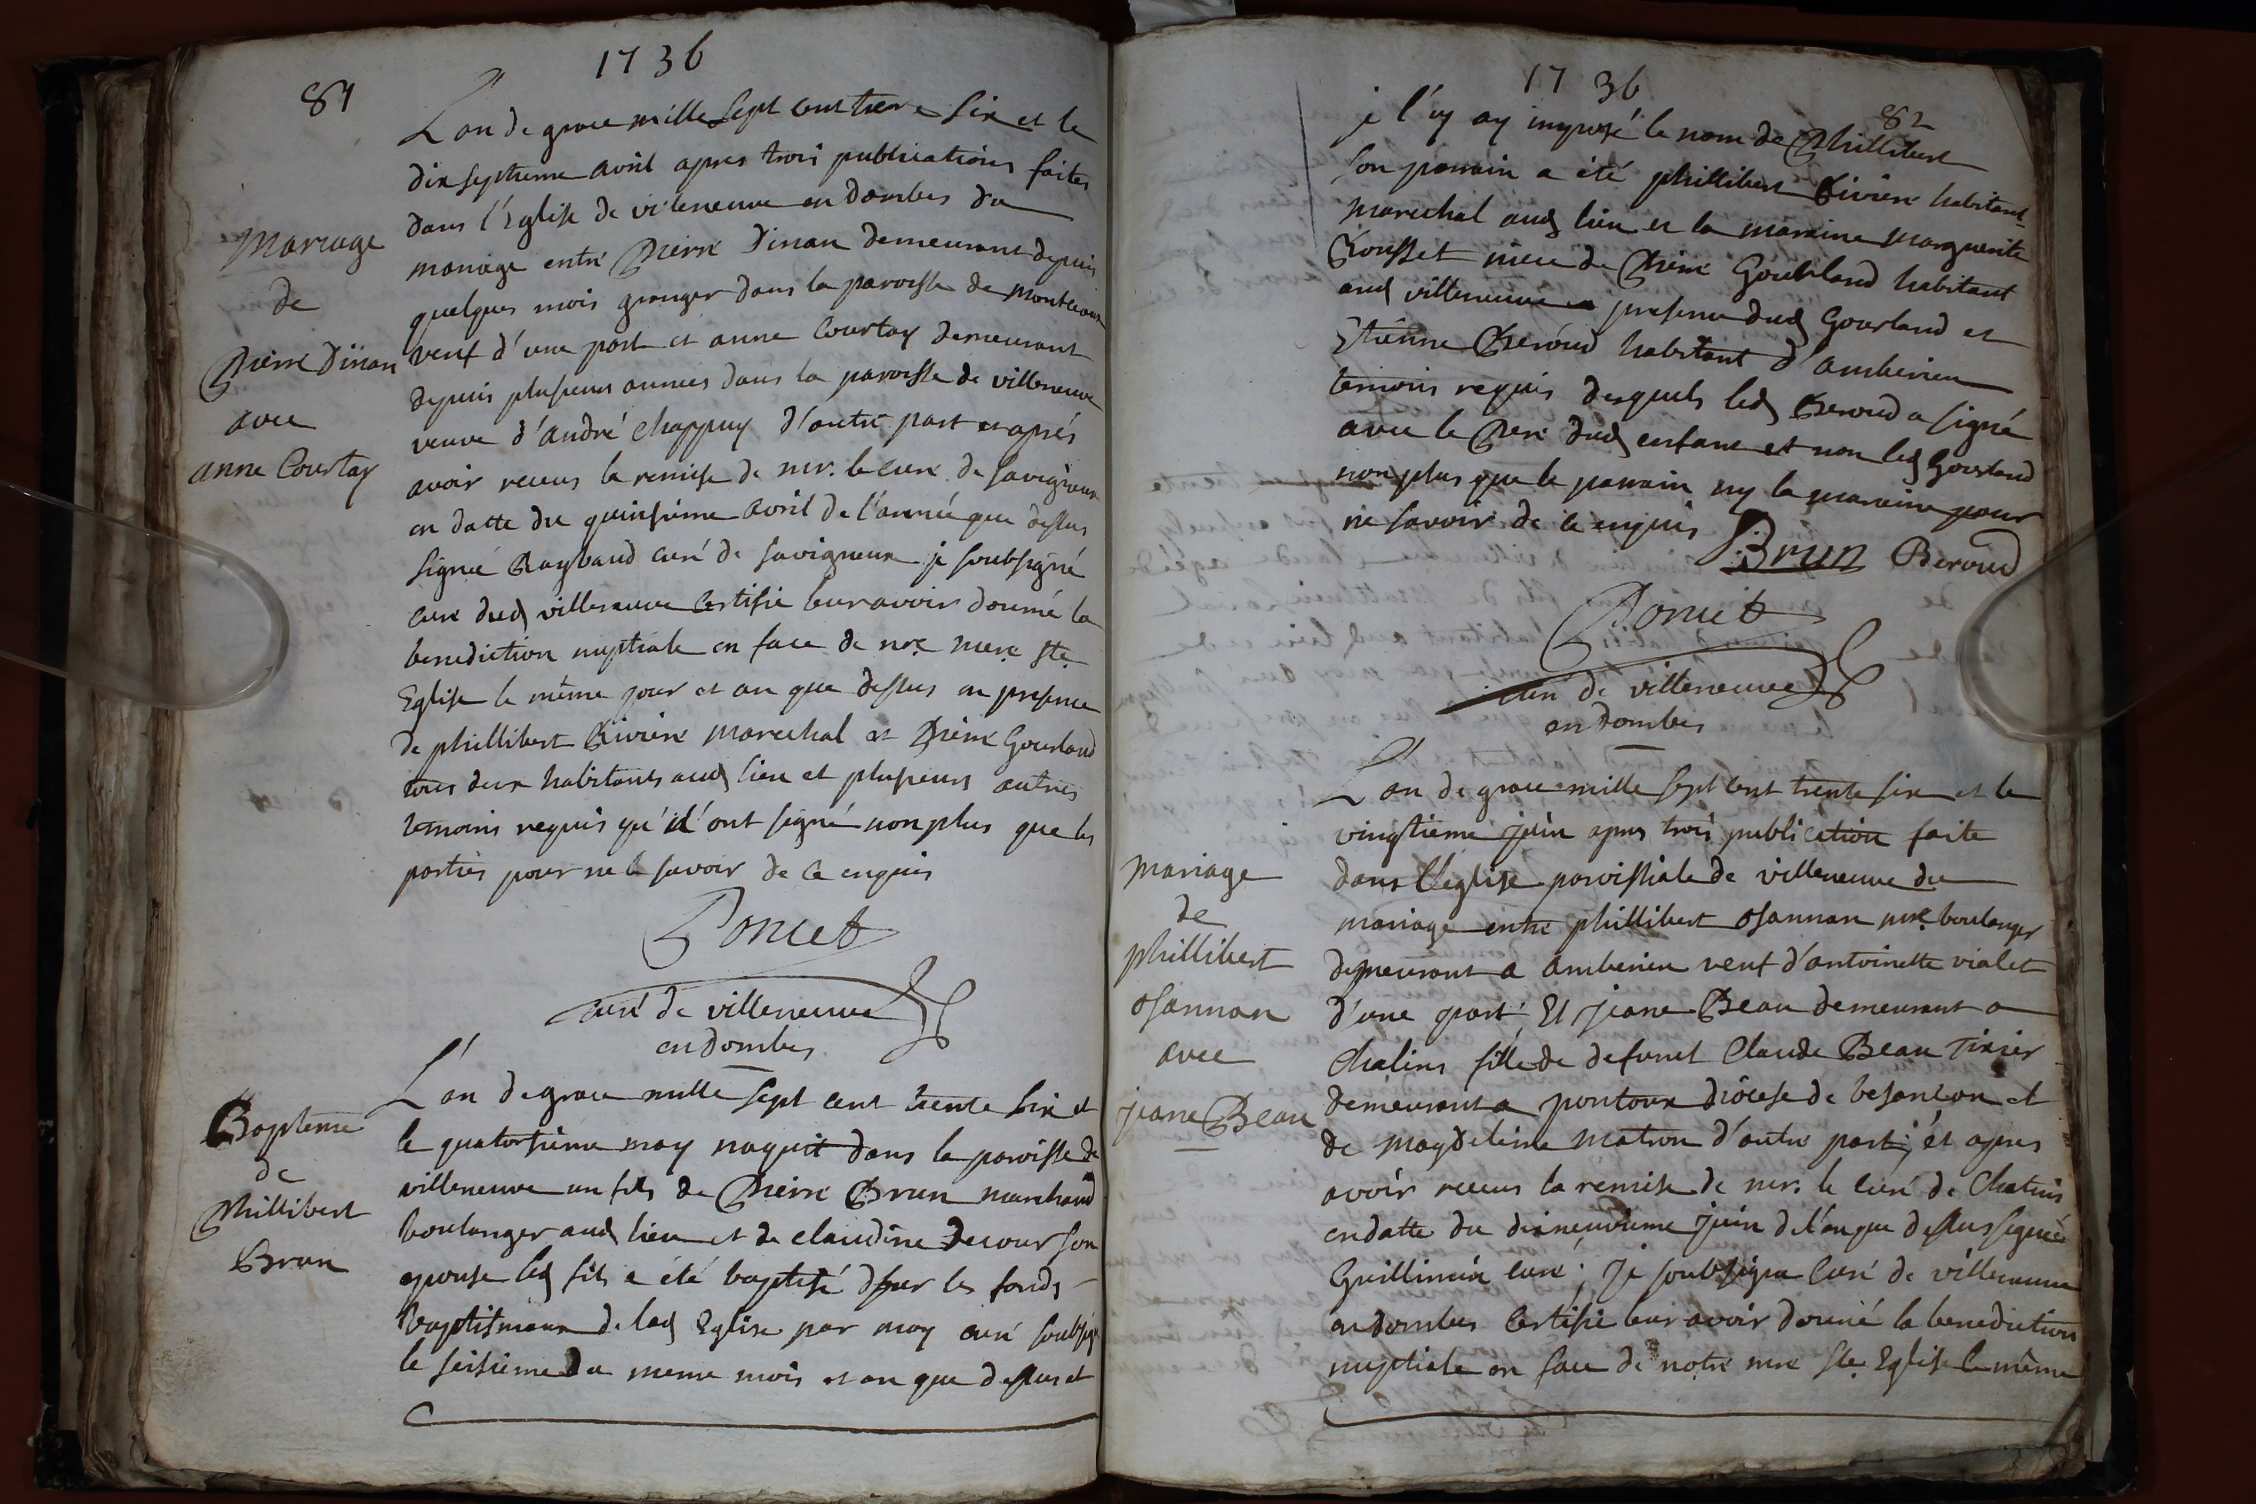 1736
81
L'an de grace mille sept cent trente six et le
dix septieme avril apres trois publications faites
dans l'Eglise de villeneuve en dombes du
mariage entre Pierre Dinan demeurant depuis
quelques mois granger dans la paroisse de monteaux
veuf d'une part et anne Courtay demeurant
depuis plusieurs annees dans la paroisse de villeneuve
veuve d'andré chappuy d'autre part et aprés
avoir receus la remise de mr. le curé de savigneux
en datte du quinsieme avril de l'année que dessus
signé Raybaud curé de savigneux je soubsigné
curé dud villeneuve certifie leur avoir donné la
benediction nuptiale en face de nre mere ste
Eglise le même jour et an que dessus en presence
de phillibert Riviere marechal et Pierre Gourland
tous deux habitants aud lieu et plusieurs autres
temoins requis qu'il n'ont signé non plus que les
parties pour ne le savoir de ce enquis
Poncet
curé de villeneuve
en dombes
Mariage
de
Pierre Dinan
avec
anne Courtay
L'an de grace mille sept cent trente six et
le quatorsieme may naquit dans la paroisse de
villeneuve un fils de Pierre Brun marchand
boulanger aud lieu et de claudine Decour son
epouse led fils a été baptisé sur les fonds
baptismaux de lad Eglise par moy curé soubsigné
le seisieme du meme mois et an que dessus et
Bapteme
de
Phillibert
Brun
1736
82
je l'uy ay imposé le nom de Phillibert
son parrain a été phillibert Riviere habitant
marechal aud lieu et la maraine Marguerite
Rousset niece de Pierre Gourland habitant
aud villeneuve presence dud Gourland et
Etienne Beroud habitant d'amberieu
temoins requis desquels led Beroud a signé
avec le Pere dud enfant et non led Gourland
non plus que le parrain ny la maraine pour
ne savoir de ce enquis
Brun Beroud
Poncet
curé de villeneuve
en dombes
L'an de grace mille sept cent trente six et le
vingtieme juin apres trois publication faite
dans l'eglise parroissiale de villeneuve du
mariage entre phillibert osannan mre boulanger
demeurant a amberieu veuf d'antoinette vialet
d'une part Et jeane Beau demeurant a
Chalins fille de defunct Claude Beau Tixier
demeurant a pontoux diocese de besancon et
de magdeleine matron d'autre part, et apres
avoir receus la remise de mr. le curé de Chaleins
en datte du dixneuvieme juin de l'an que dessus signée
Guillimin curé; je soubsigné curé de villeneuve
en dombes certifie leur avoir donné la benediction
nuptiale en face de notre mre Ste Eglise le même
mariage
de
phillibert
osannan
avec
jeane Beau